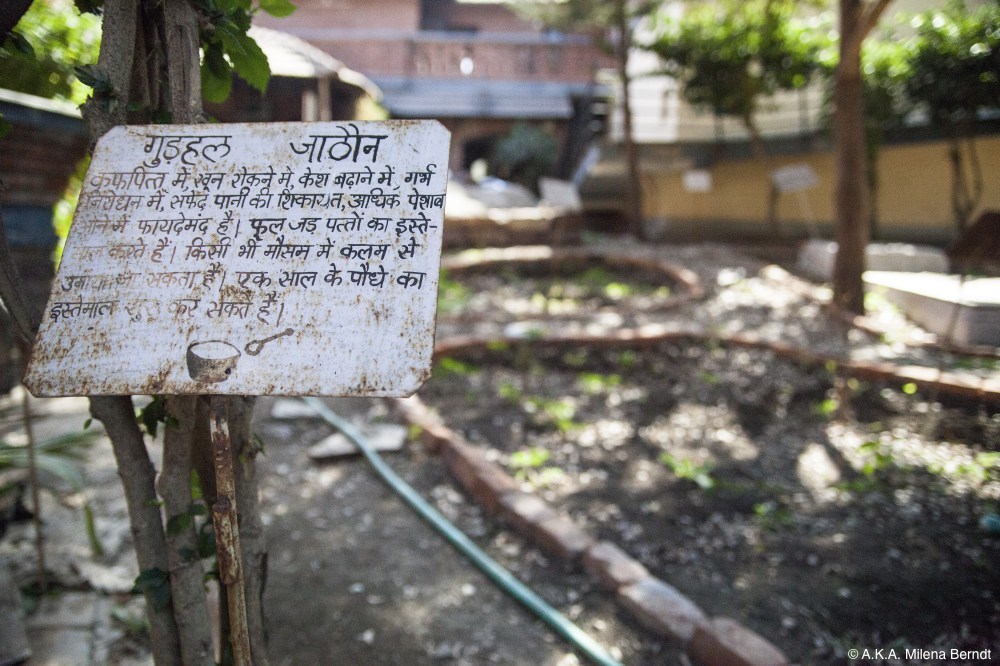 गुड़हल जाठौन
कफपित्त में, खून रोकने में, केश बढ़ाने में, गर्भ
में, सफेद पानी की शिकायत, अधिक पेशाब
में फायदेमंद है। फूल जड़ पत्तों का इस्ते-
करते हैं। किसी भी मौसम में कलम से
जा सकता है। एक साल के पौधे का
इस्तेमाल शुरु कर सकते है।
© A.K.A. Milena Berndt